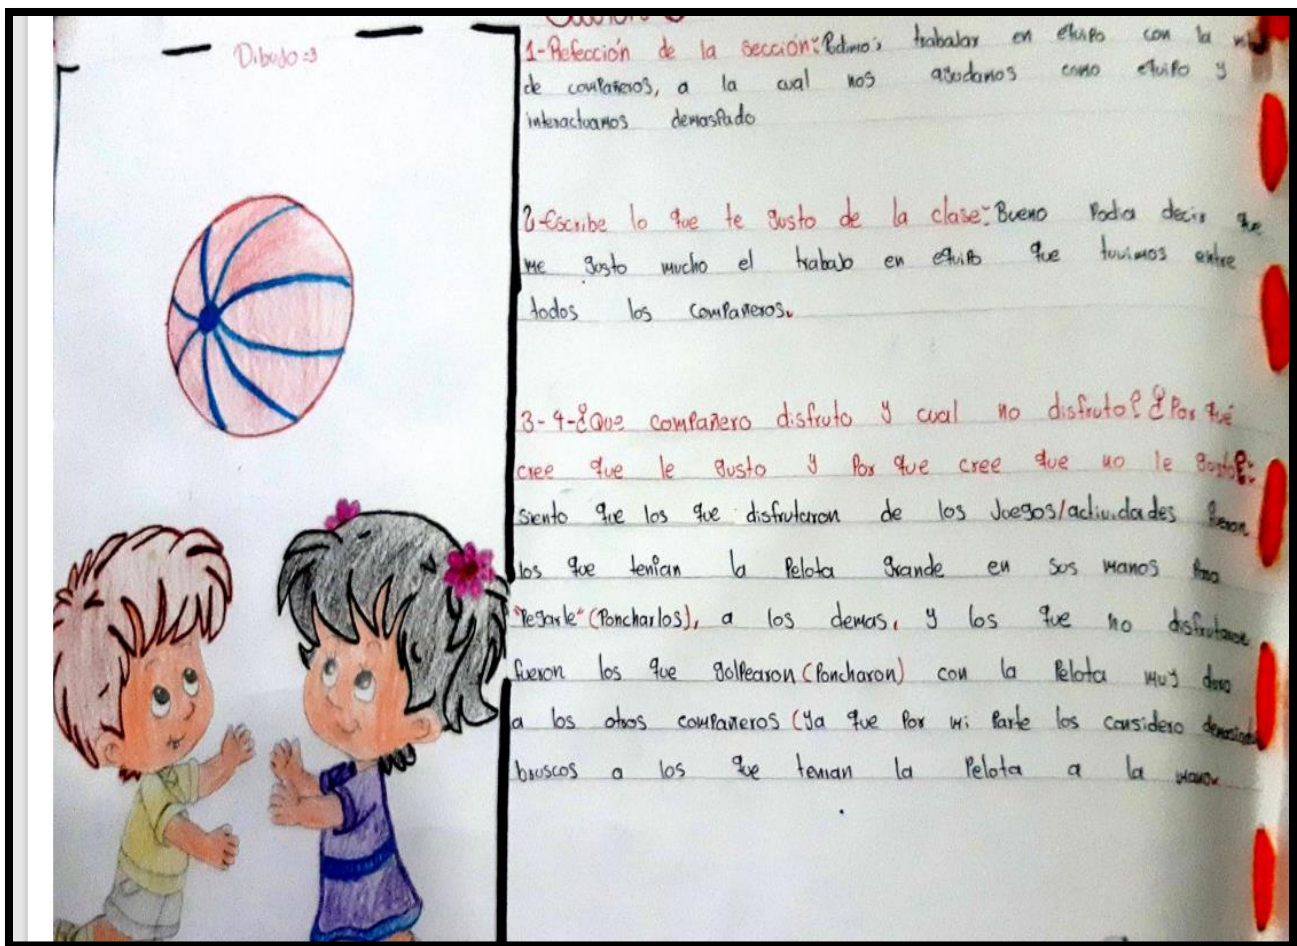 Dibujo :3
1-Refección de la sección: Pudimos trabalar en equipo con la
de compañeros, a la cual nos ayudamos como equipo y
interactuamos demasiado
2-Escribe lo que te gusto de la clase: Bueno Podia decir que
me gusto mucho el trabajo en equipo que tuvimos entre
todos los compañeros.
3-4-¿Que compañero disfruto y cual no disfruto? ¿Por qué
cree que le gusto y Por que cree que no le gusto?:
siento que los que disfrutaron de los Juegos/actividades fueron
los que tenian la Pelota grande en sus manos Para
"Pegarle" (Poncharlos), a los demas, y los que no disfrutaron
fueron los que golpearon (Poncharon) con la Pelota muy duro
a los otros compañeros (Ya que Por mi Parte los considero demasiado
bruscos a los que tenian la Pelota a la mano.